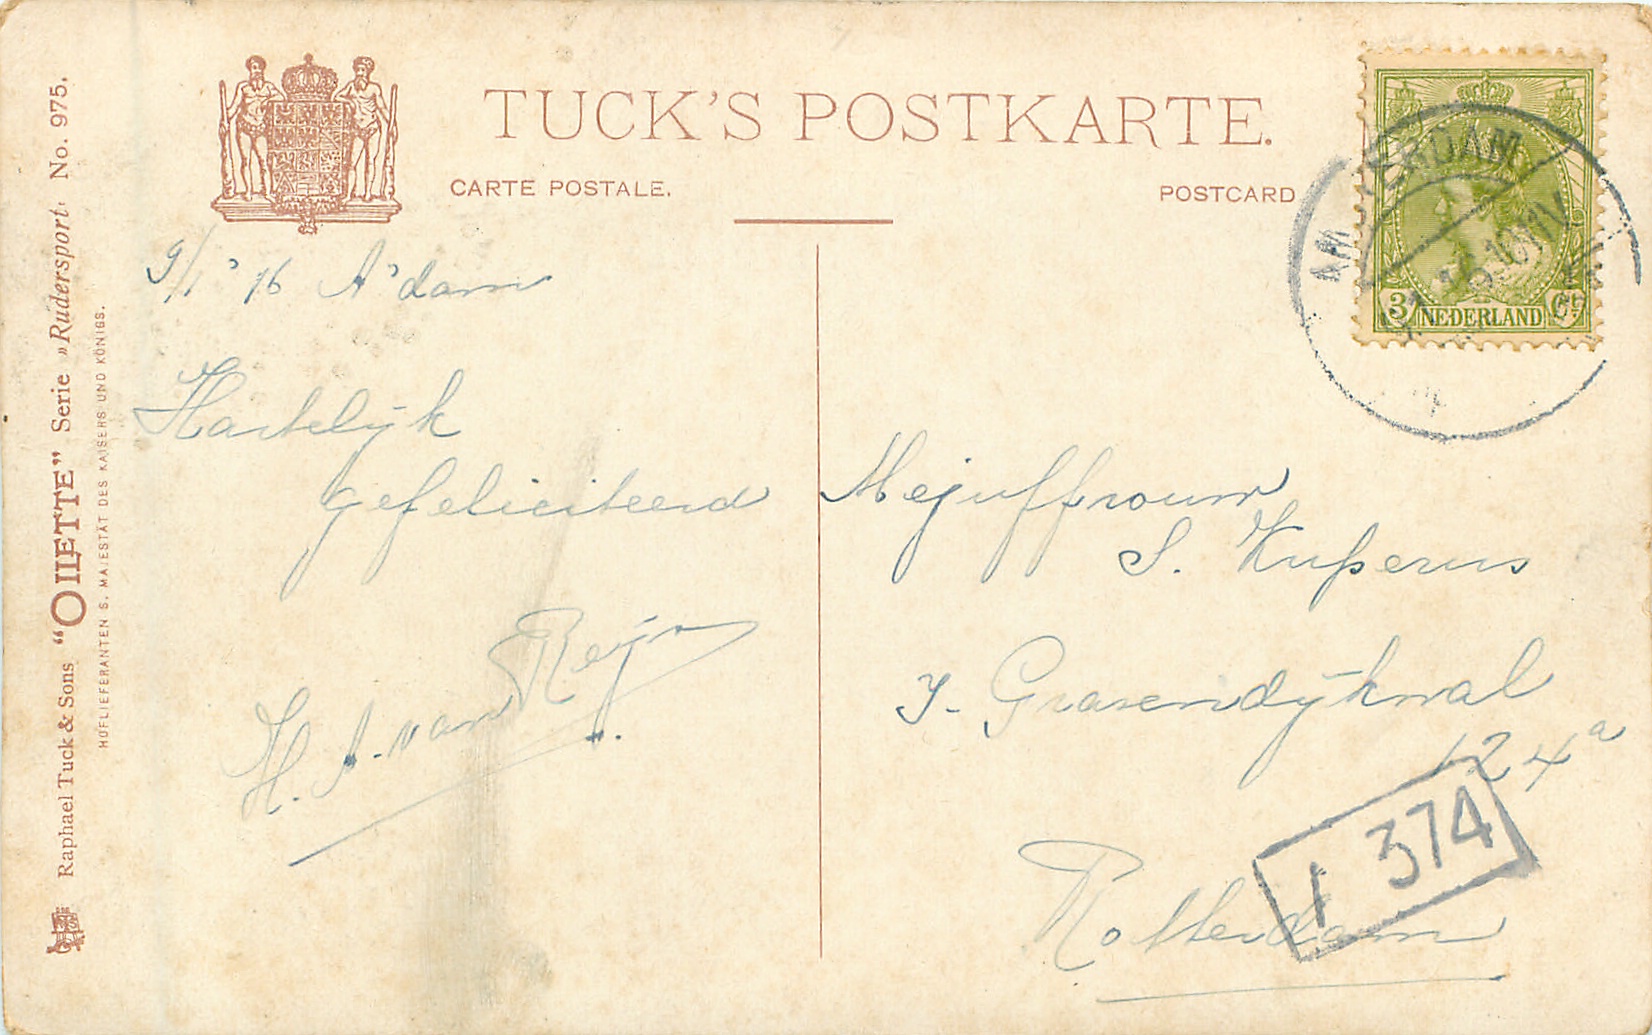 TUCK'S POSTKARTE.
CARTE POSTALE.
POSTCARD
Raphael Tuck & Sons "OILETTE" Serie „Rudersport“ No. 975.
HOFLIEFERANTEN S. MAJESTÄT DES KAISERS UND KÖNIGS.
3 NEDERLAND Ct
AMSTERDAM
9/1 '16 A'dam
Hartelijk
gefeliciteerd
H. A. van Reijn
Mejuffrouw
S. Kuperus
'S-Gravendijkwal
124a
Rotterdam
1 374